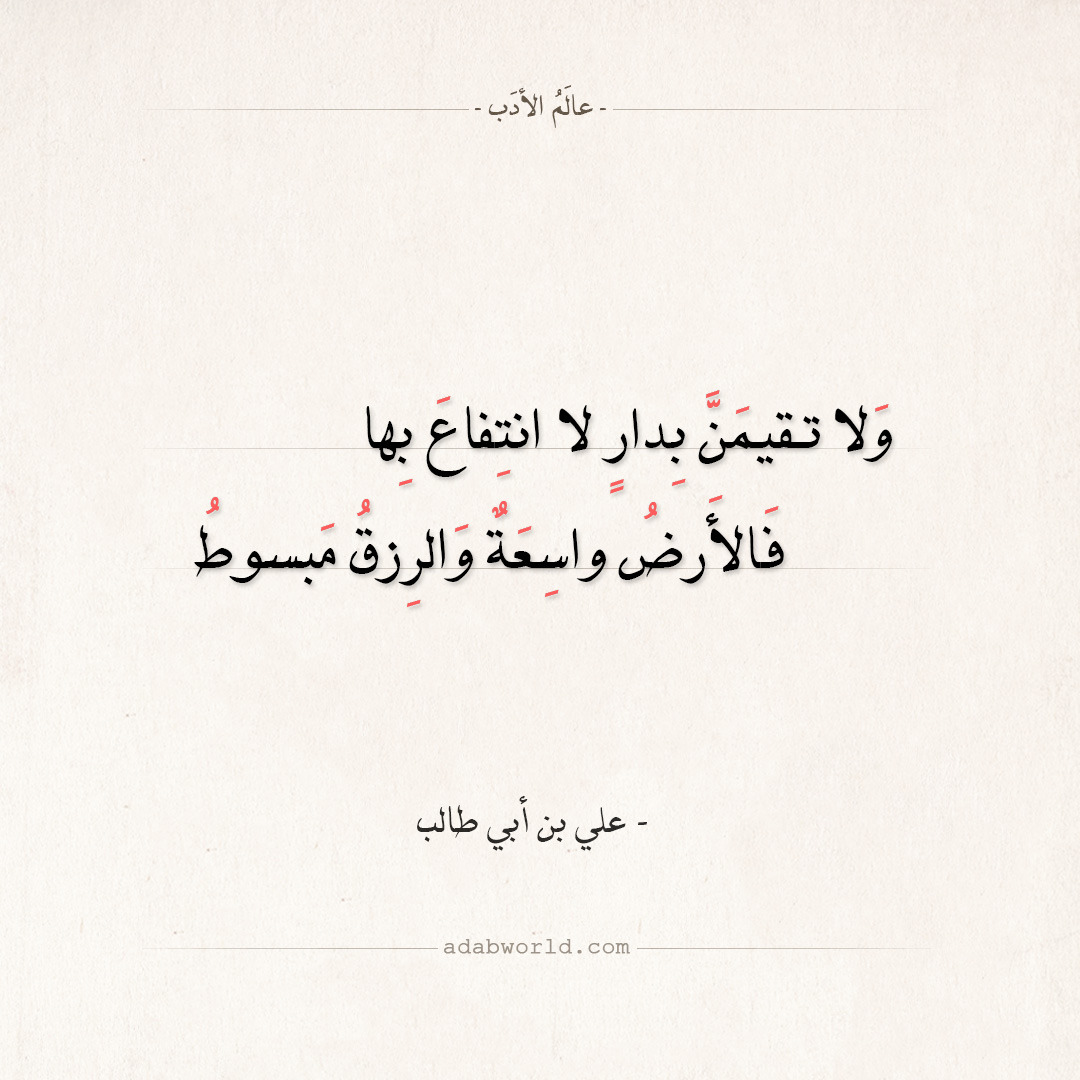 - عالَمُ الأدَب -
وَلا تـقيـمَنَّ بِدارٍ لا انتِفاعَ بِها
فَالأَرضُ واسِعَةٌ وَالرِزقُ مَبسوطُ
- علي بن أبي طالب
adabworld.com